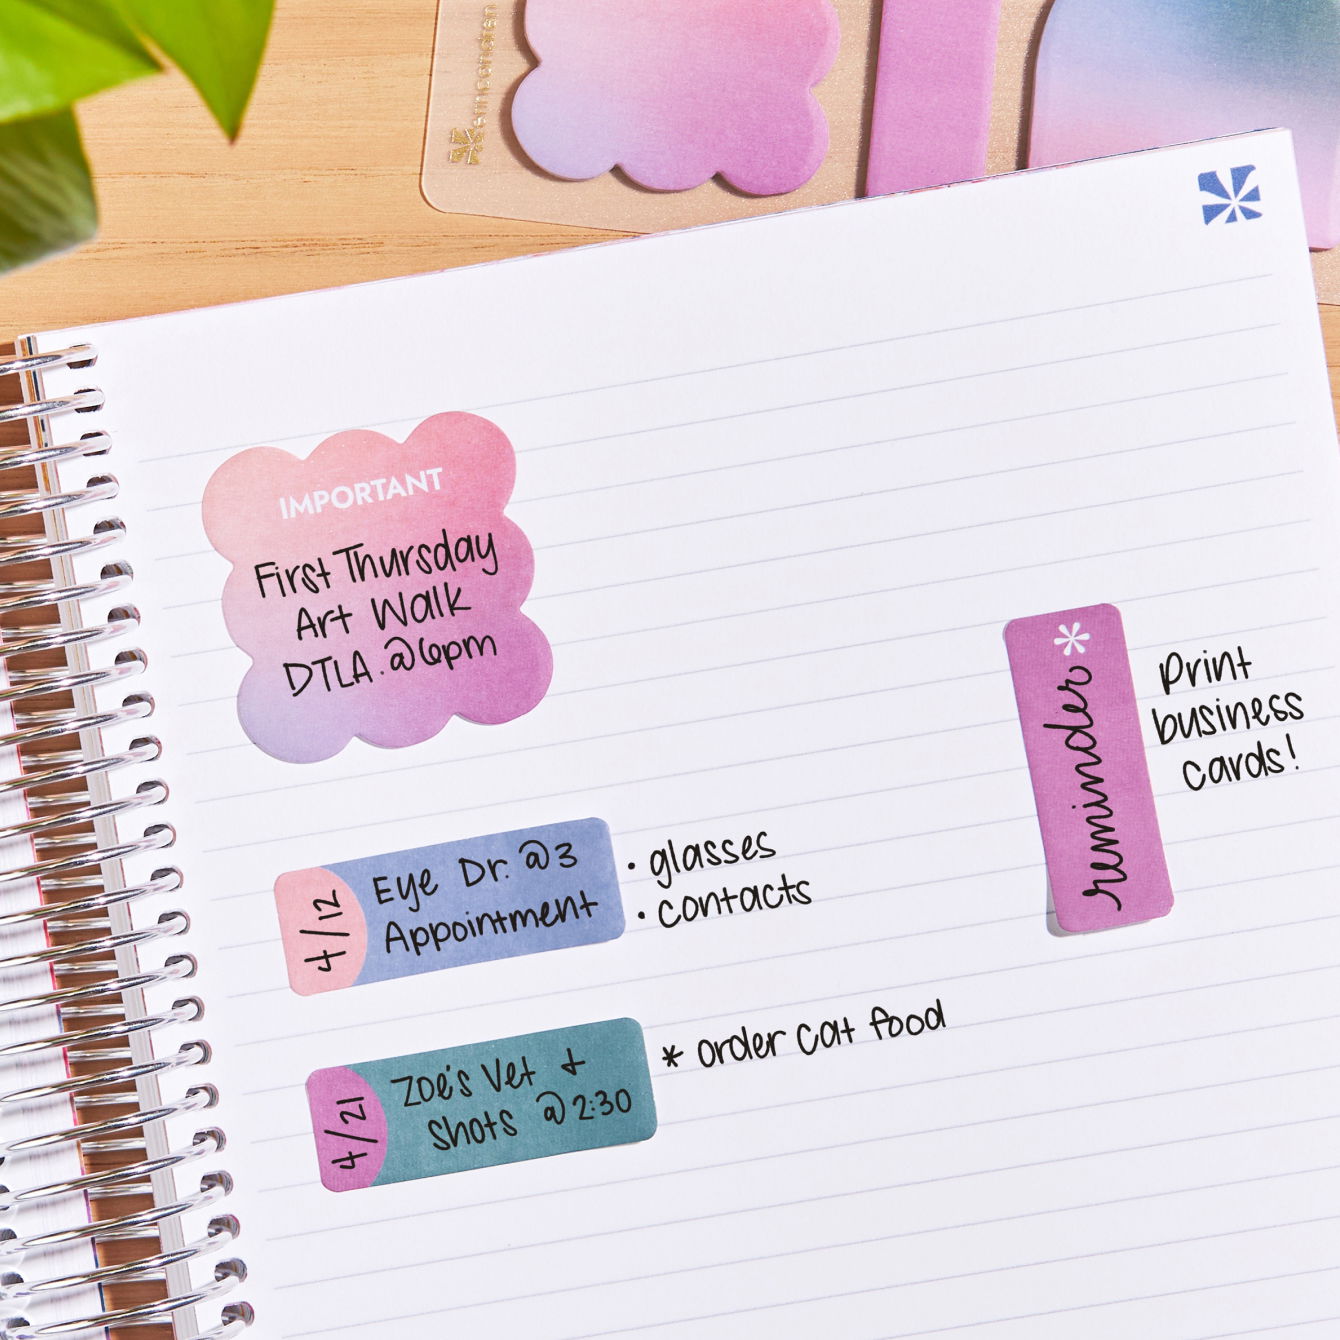 erin condren
IMPORTANT
First Thursday
Art Walk
DTLA. @6pm
reminder *
Print
business
cards!
4/12
Eye Dr. @3
Appointment
• glasses
• contacts
4/21
Zoe's Vet +
Shots @2:30
* order cat food